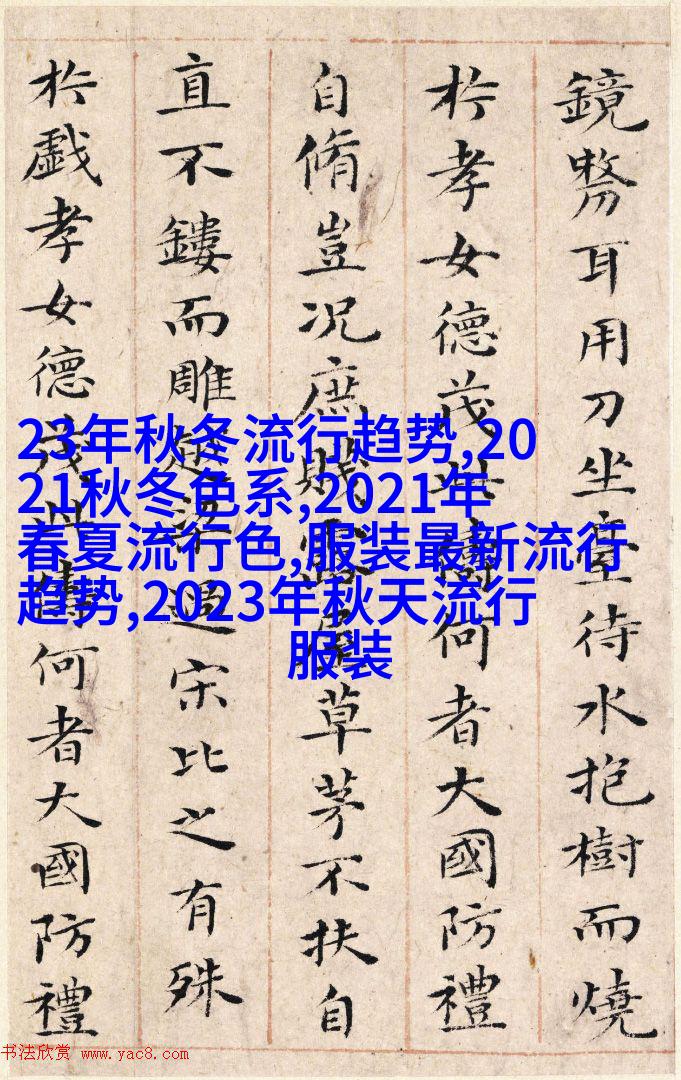 鏡剺耳用刀坐臺待水抱樹而燒
扵孝女德茂此儔何者大國防禮
自脩豈况庶賤露屋草茅不扶自
直不鏤而雕越梁過宋比之有殊
扵戲孝女德茂此儔何者大國防禮
23年秋冬流行趋势,20
21秋冬色系,2021年
春夏流行色,服装最新流行
趋势,2023年秋天流行
服装
书法欣赏 www.yac8.com